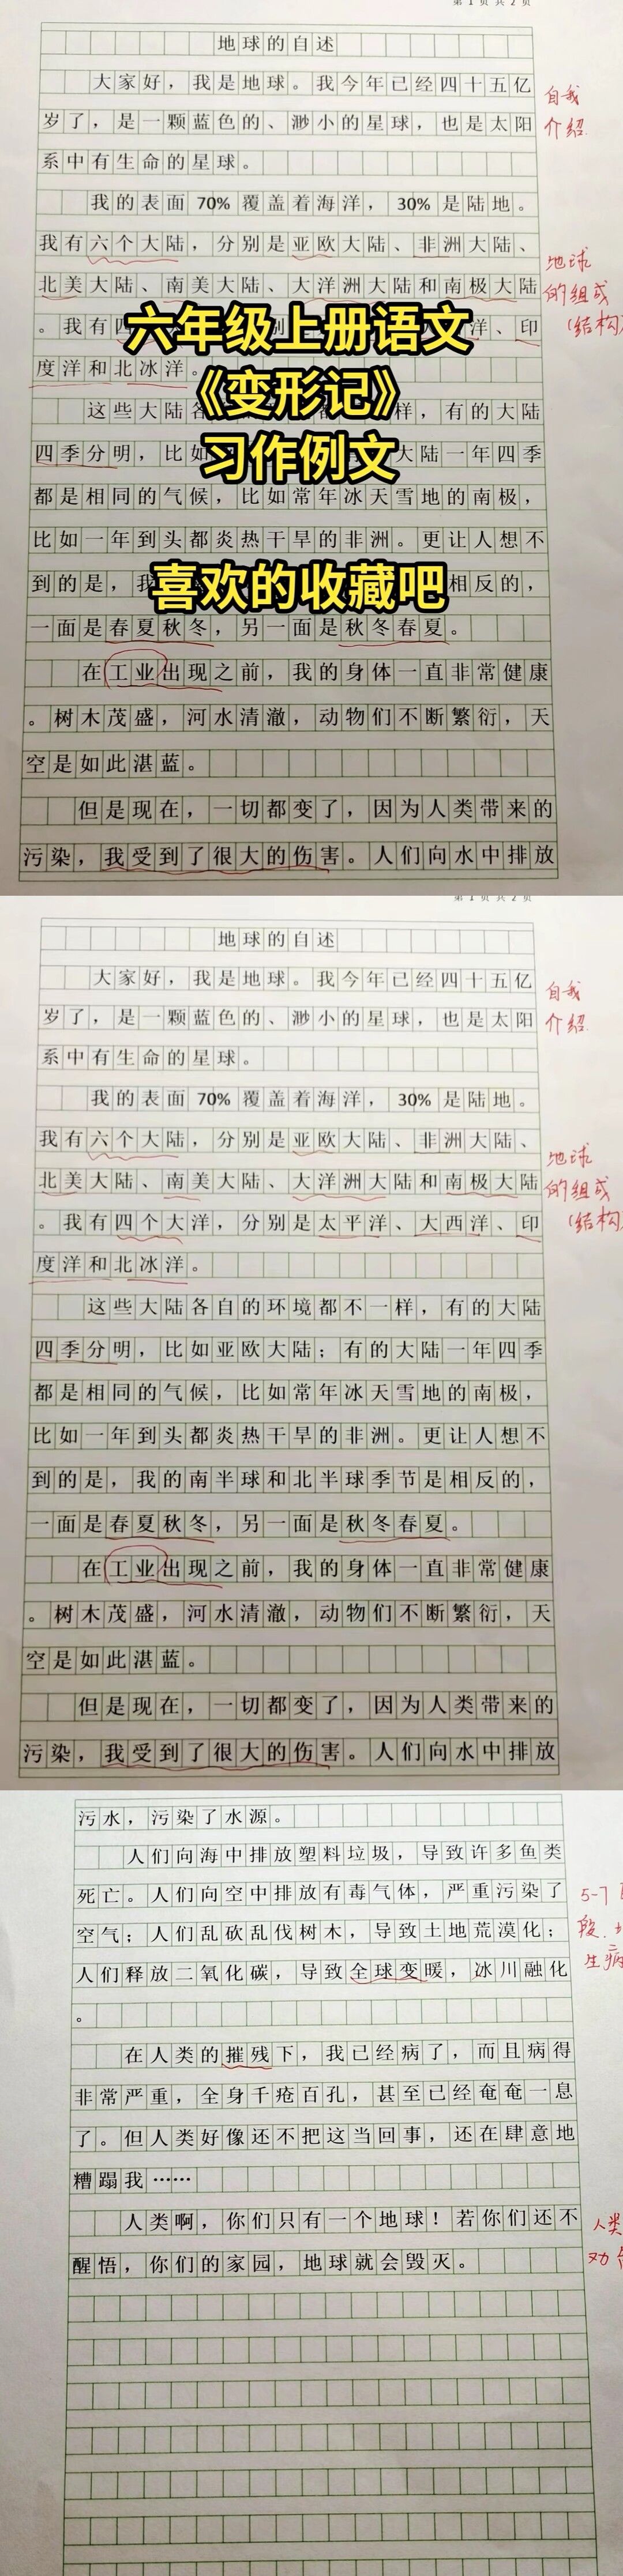 第 1 页 共 2 页
地球的自述
大家好，我是地球。我今年已经四十五亿
岁了，是一颗蓝色的、渺小的星球，也是太阳
系中有生命的星球。
自我
介绍
我的表面 70% 覆盖着海洋，30% 是陆地。
我有六个大陆，分别是亚欧大陆、非洲大陆、
北美大陆、南美大陆、大洋洲大陆和南极大陆
。我有四 洋、印
度洋和北冰洋。
地球
的组成
（结构）
六年级上册语文
《变形记》
习作例文
喜欢的收藏吧
这些大陆各 样，有的大陆
四季分明，比如 大陆一年四季
都是相同的气候，比如常年冰天雪地的南极，
比如一年到头都炎热干旱的非洲。更让人想不
到的是，我 相反的，
一面是春夏秋冬，另一面是秋冬春夏。
在工业出现之前，我的身体一直非常健康
。树木茂盛，河水清澈，动物们不断繁衍，天
空是如此湛蓝。
但是现在，一切都变了，因为人类带来的
污染，我受到了很大的伤害。人们向水中排放
第 1 页 共 2 页
地球的自述
大家好，我是地球。我今年已经四十五亿
岁了，是一颗蓝色的、渺小的星球，也是太阳
系中有生命的星球。
自我
介绍
我的表面 70% 覆盖着海洋，30% 是陆地。
我有六个大陆，分别是亚欧大陆、非洲大陆、
北美大陆、南美大陆、大洋洲大陆和南极大陆
。我有四个大洋，分别是太平洋、大西洋、印
度洋和北冰洋。
地球
的组成
（结构）
这些大陆各自的环境都不一样，有的大陆
四季分明，比如亚欧大陆；有的大陆一年四季
都是相同的气候，比如常年冰天雪地的南极，
比如一年到头都炎热干旱的非洲。更让人想不
到的是，我的南半球和北半球季节是相反的，
一面是春夏秋冬，另一面是秋冬春夏。
在工业出现之前，我的身体一直非常健康
。树木茂盛，河水清澈，动物们不断繁衍，天
空是如此湛蓝。
但是现在，一切都变了，因为人类带来的
污染，我受到了很大的伤害。人们向水中排放
污水，污染了水源。
人们向海中排放塑料垃圾，导致许多鱼类
死亡。人们向空中排放有毒气体，严重污染了
空气；人们乱砍乱伐树木，导致土地荒漠化；
人们释放二氧化碳，导致全球变暖，冰川融化
。
5-7
段、
生病
在人类的摧残下，我已经病了，而且病得
非常严重，全身千疮百孔，甚至已经奄奄一息
了。但人类好像还不把这当回事，还在肆意地
糟蹋我……
人类啊，你们只有一个地球！若你们还不
醒悟，你们的家园，地球就会毁灭。
人类
劝